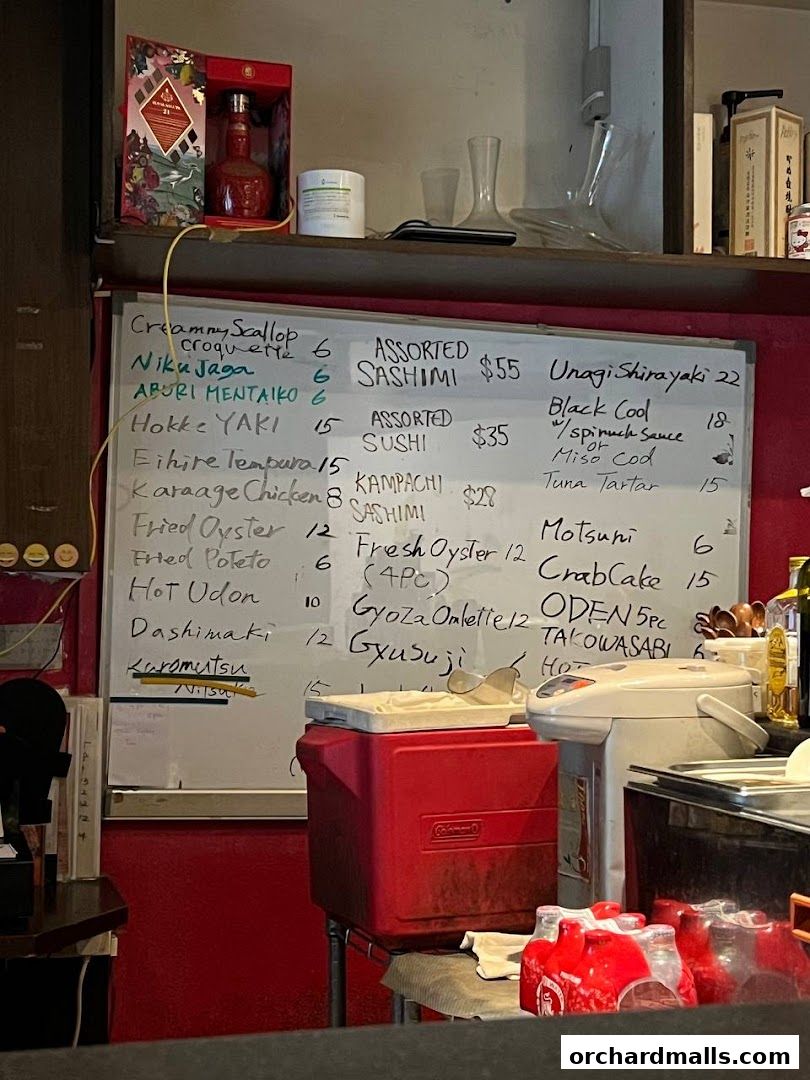 ROYAL SALUTE
21
Creammy Scallop
croquette 6
Niku Jaga 6
ABURI MENTAIKO 6
Hokke YAKI 15
Eihire Tempura 15
Karaage Chicken 8
Fried Oyster 12
Fried Poteto 6
HoT Udon 10
Dashimaki 12
Kuromutsu
Nitsuke 15
ASSORTED
SASHIMI $55
ASSORTED
SUSHI $35
KAMPACHI
SASHIMI $28
Fresh Oyster 12
(4Pc)
GyoZa Omlette 12
Gyusuji
Unagi Shirayaki 22
Black Cod 18
w/spinuch sauce
or
Miso Cod
Tuna Tartar 15
Motsuni 6
Crab Cake 15
ODEN 5pc
TAKOWASABI
HOT
Coleman
orchardmalls.com